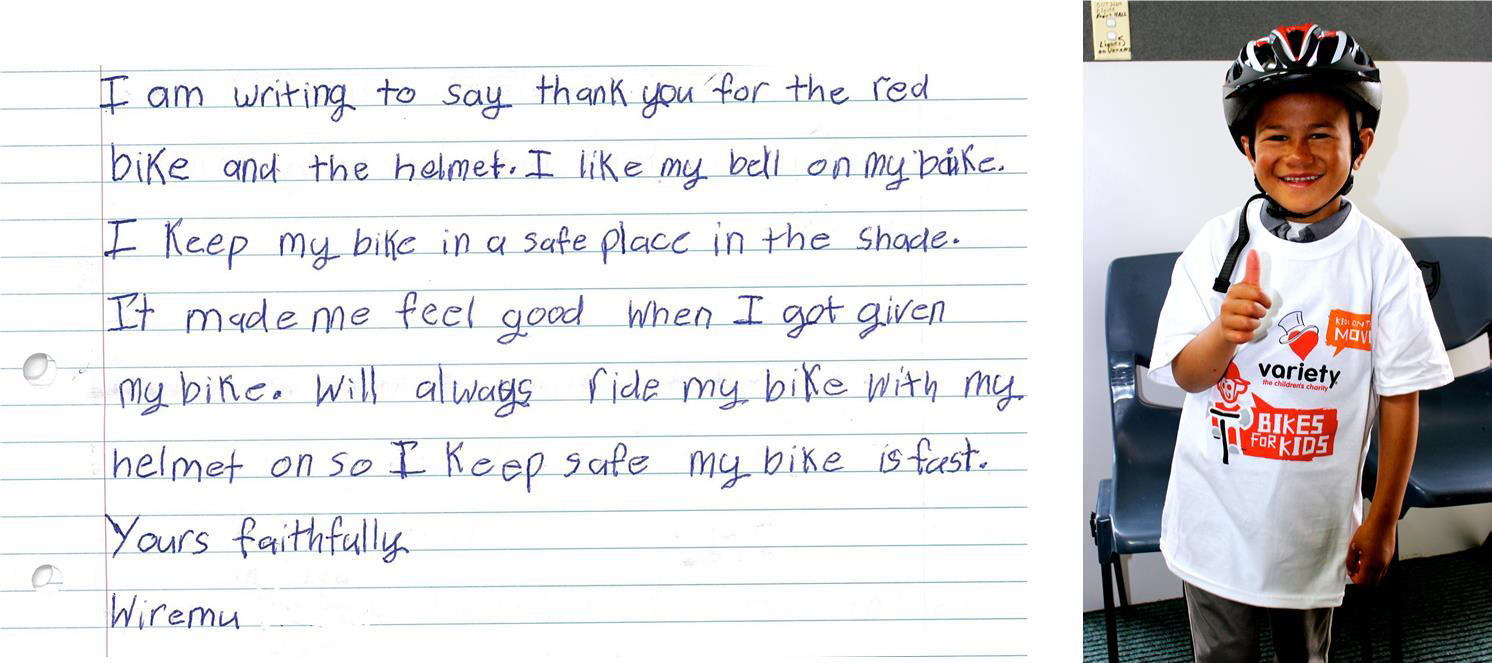 I am writing to say thank you for the red
bike and the helmet. I like my bell on my bike.
I keep my bike in a safe place in the shade.
It made me feel good when I got given
my bike. Will always ride my bike with my
helmet on so I keep safe my bike is fast.
Yours faithfully
Wiremu
Lights
KIDS ON T
MOV
variety
the children's charity
BIKES
FOR KIDS